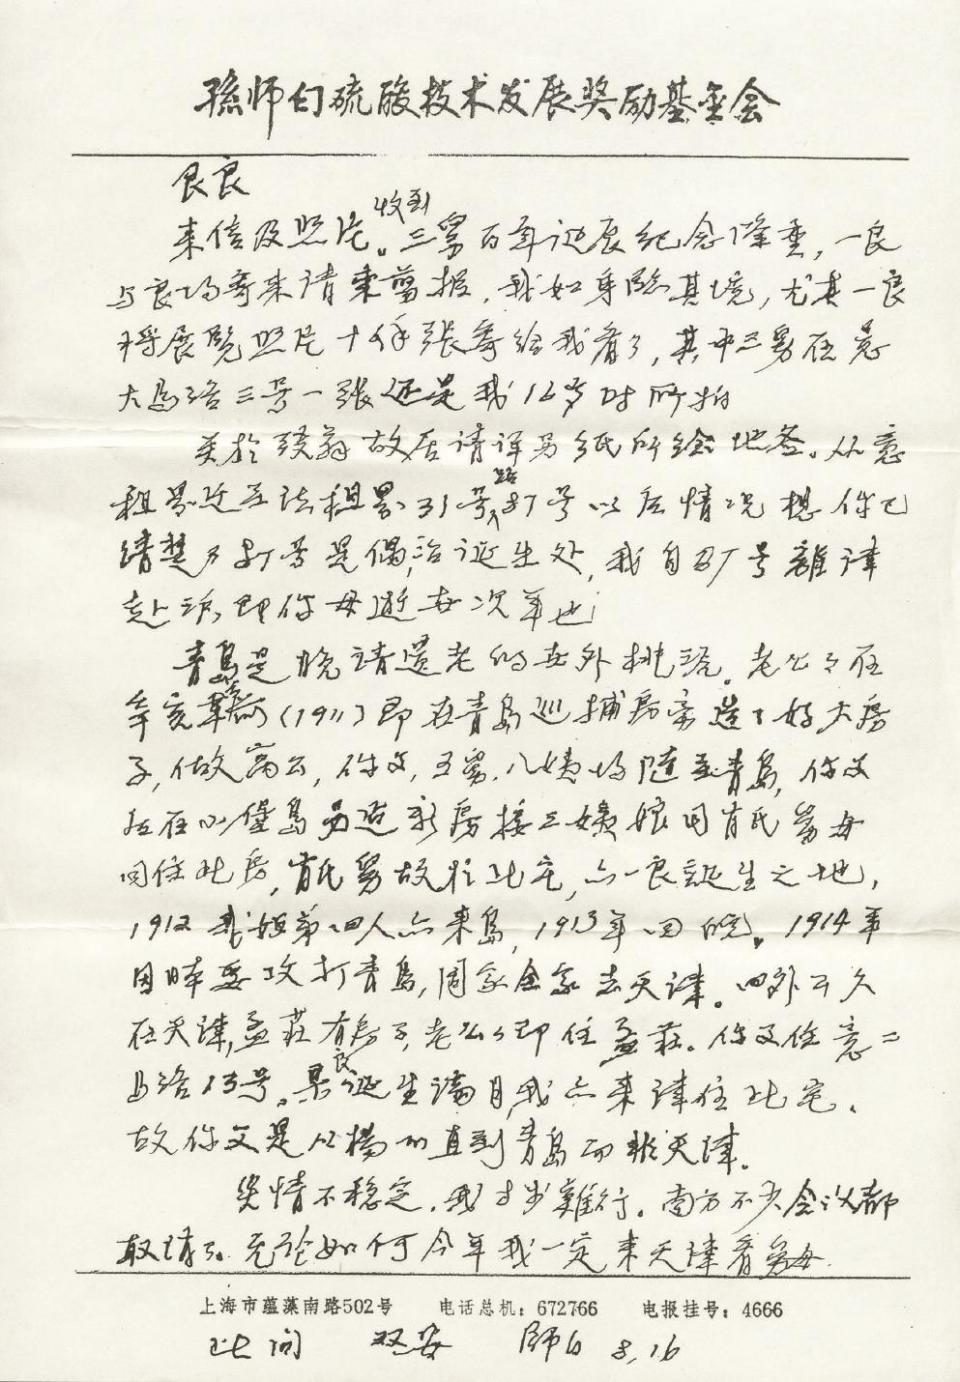 孫师白硫酸技术发展奖励基金会
良
来信及照片收到。三舅百年诞辰纪念隆重，一良
与良 寄来请柬剪报，我如身临其境，尤其一良
将展览照片十余张寄给我看了，其中三舅在意
大马路三号一张还是我12岁时所拍
关於 故居请详另纸所绘地
租界迁至法租界31号路87号以后情况想你已
清楚 号是 诞生处，我自 号離津
赴沪，即你母逝去次年也
青岛是晚清遗老的世外桃源。老公公在
辛亥革命(1911)即在青岛巡捕房旁造了好大房
子，做寓公，你父，五舅，八姨 随至青岛，你父
在 岛另造新房接三姨娘 舅母
同住此房， 舅故於此宅，亦一良誕生之地，
1912我姐弟四人亦来岛，1913年回皖。1914年
因日本要攻打青岛，周家全家去天津。四外公久
在天津，孟莊有房子，老公公即住孟莊。你父住意二
马路 号。杲良诞生满月，我亦来津住此宅、
故你父是从揚州直到青岛而非天津。
病情不稳定，我寸步難行。南方不少会议都
取消了。无论如何今年我一定来天津看舅母
上海市蕴藻南路502号 电话总机：672766 电报挂号：4666
此问 双安 师白 8.16